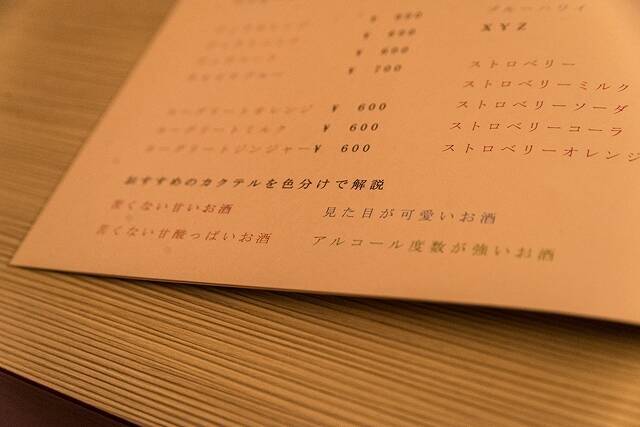 ¥ 600
¥ 600
¥ 700
ヨーグリートオレンジ ¥ 600
ヨーグリートミルク ¥ 600
ヨーグリートジンジャー ¥ 600
ブルーハワイ
XYZ
ストロベリー
ストロベリーミルク
ストロベリーソーダ
ストロベリーコーラ
ストロベリーオレンジ
おすすめのカクテルを色分けで解説
苦くない甘いお酒
見た目が可愛いお酒
苦くない甘酸っぱいお酒
アルコール度数が強いお酒